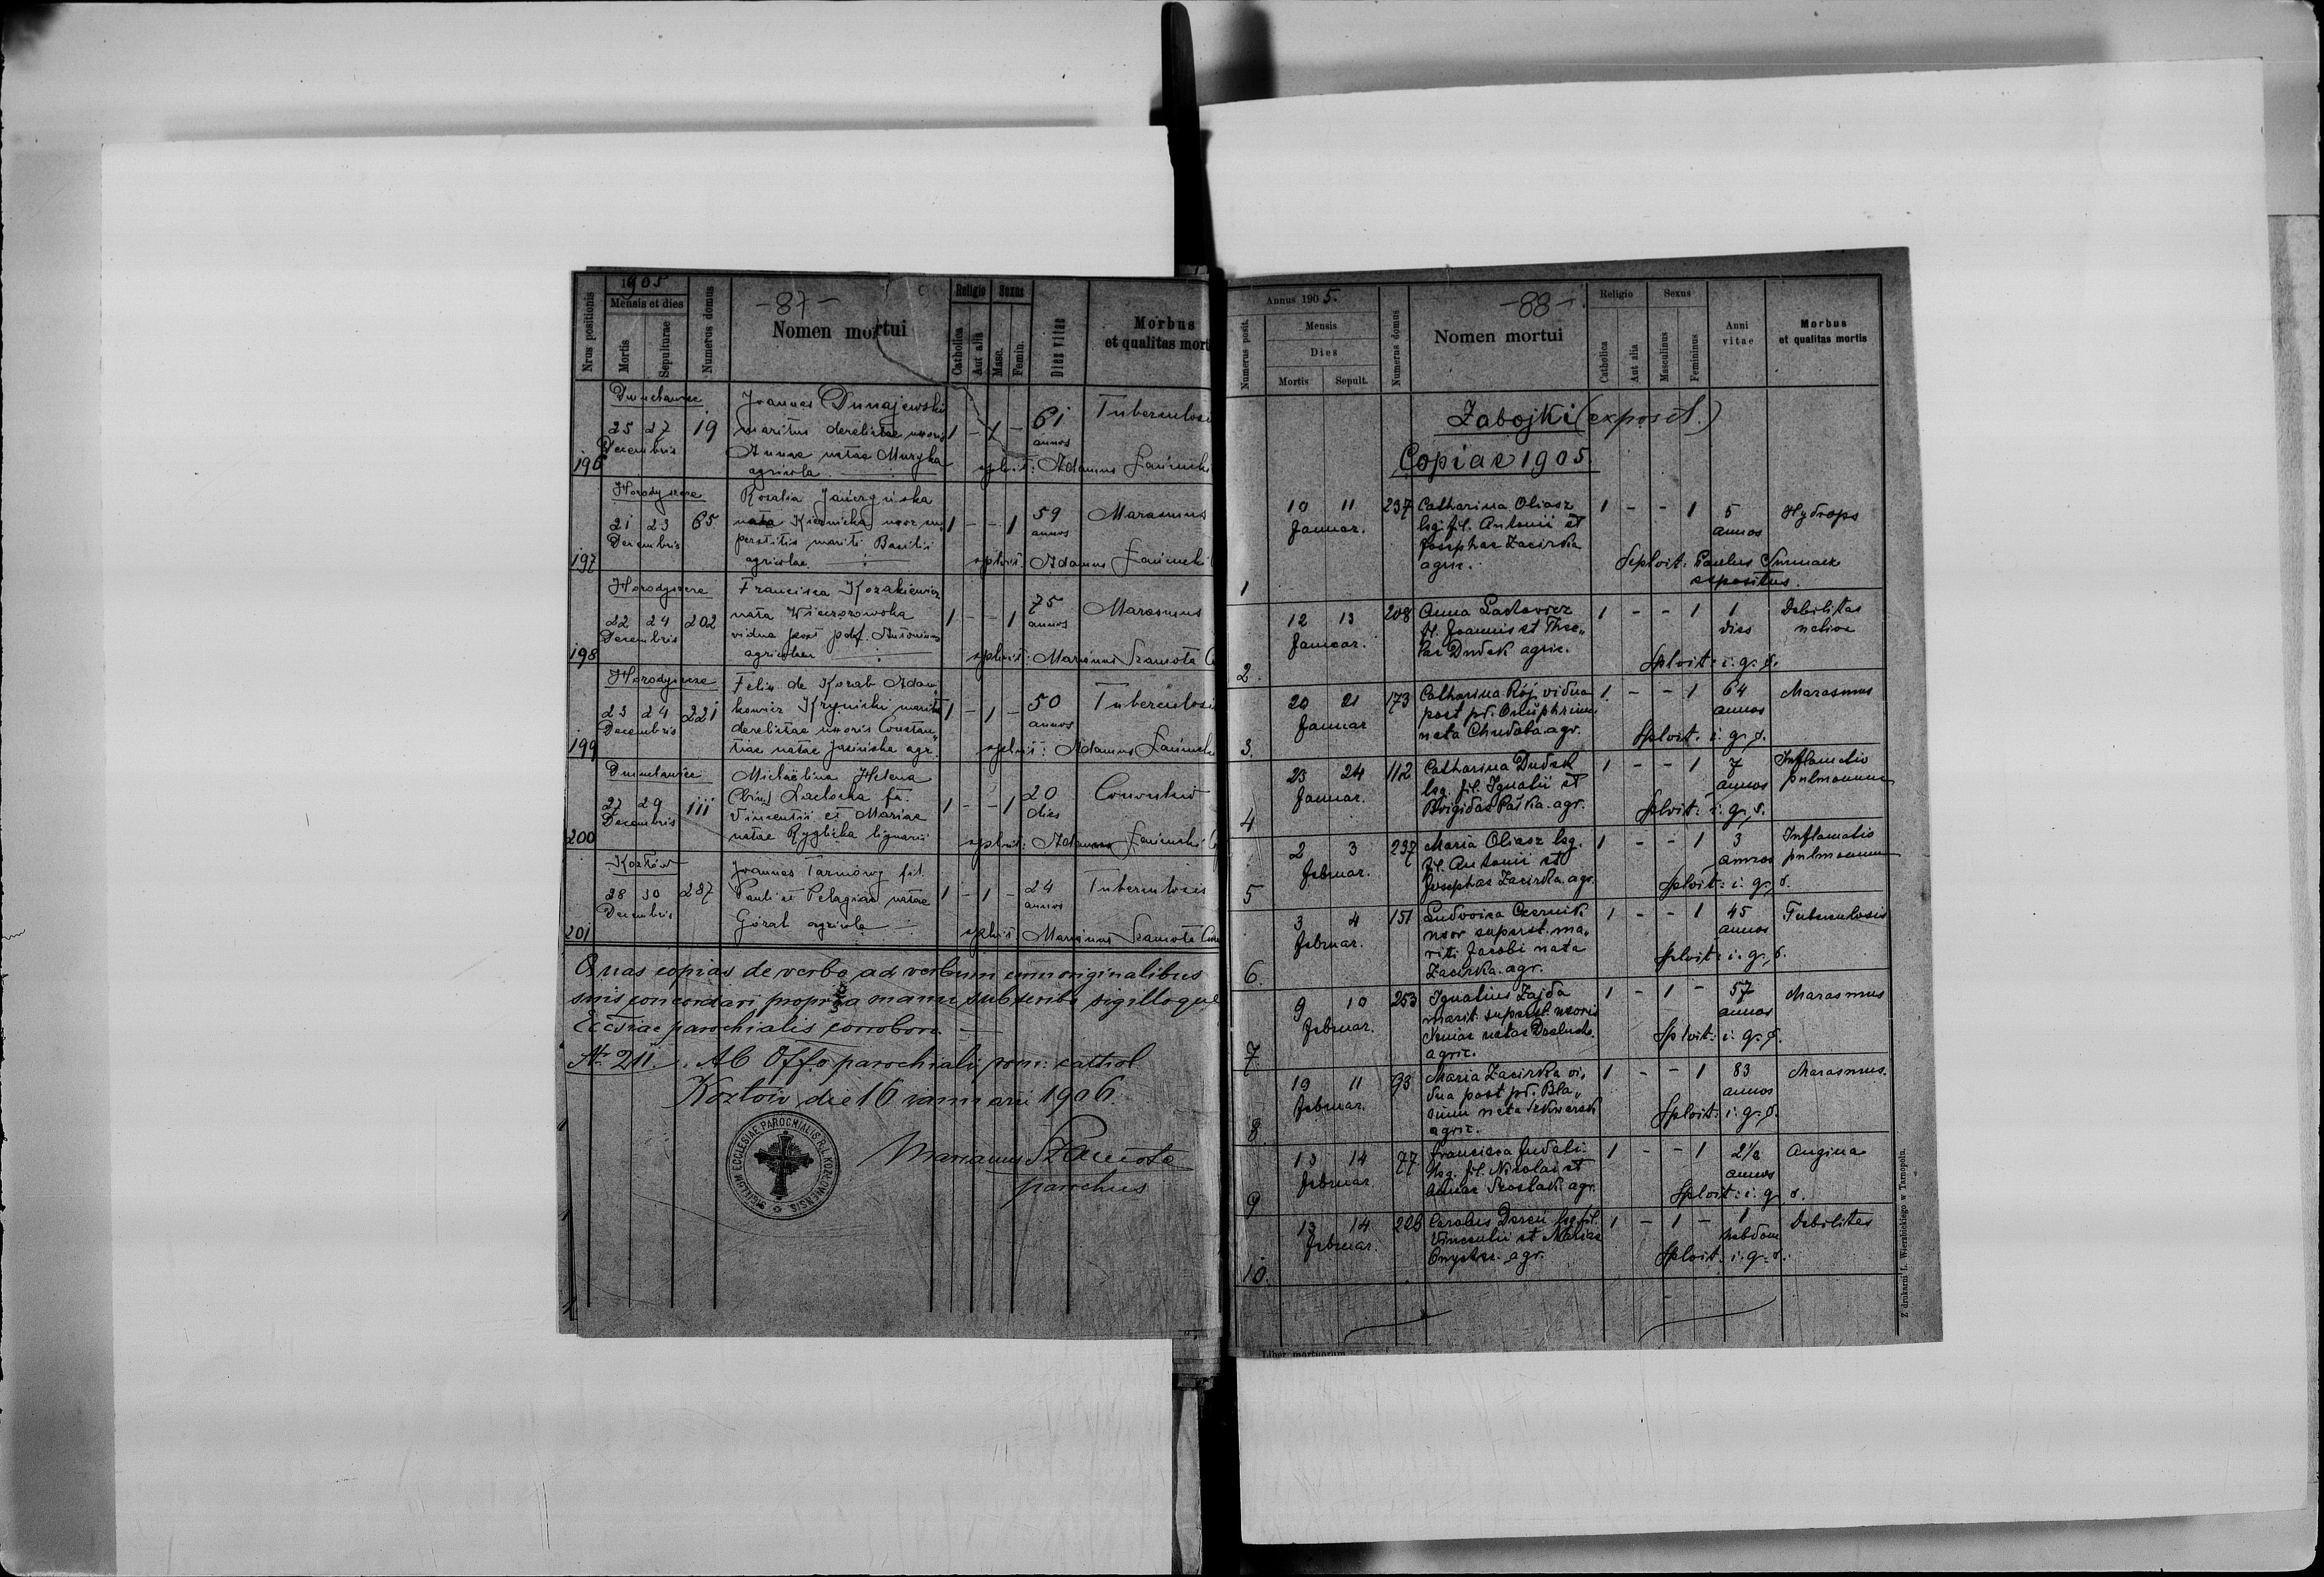 1905
Mensis et dies
Nrus positionis
Mortis
Sepulturae
Numerus domus
-87-
Nomen mortui
Religio
Sexus
Catholica
Aut alia
Masc.
Femin.
Dies vitae
Morbus
et qualitas mort
25 27 19
Decembris
Joannes Dunajewski
maritus derelictae uxoris
Annae natae Muzyka
agricola
1 - 1 -
61
annos
spłvit: Adamus
196
Horodyszcze
21 23 65
Decembris
Rosalia
nata Kiernicka uxor su,
perstitis mariti Basilii
agricolae
1 - - 1
59
annos
Marasmus
Adamus
197
Horodyszcze
22 24 202
Decembris
Francisca Kozakiewicz
nata Wieczorowska
vidua post pdf. Antonium
agricolam
1 - - 1
75
annos
Marasmus
Marianus Szamota
198
Horodyszcze
23 24 221
Decembris
Felix de Korab Adam
kowicz Krynicki
derelictae uxoris Constan„
tiae natae Jasińska agr.
1 - 1 -
50
annos
Adamus
199
27 29 111
Decembris
Michaëlina Helena
(bin.)
Vincentii et Mariae
natae Ryglicka lignarii
1 - - 1
20
dies
Adamus
200
Kozłów
28 30 287
Decembris
Joannes Tarnowy fil.
Pauli et Pelagiae natae
Góral agricola
1 - 1 -
24
annos
Tuberculosis
Marianus Szamota
201
Quas copias de verbo ad verbum cum originalibus
suis concordari propria manu subscribo sigilloque
Ecclsiae parochialis corroboro.
№ 211. Ab Offo parochiali rom: cathol
Kozłów die 16 ianuarii 1906.
SIGILLUM ECCLESIAE PAROCHIALIS R.L. KOZŁOWIENSIS
Marianus Szamota
parochus
Annus 1905.
Numerus posit.
Mensis
Dies
Mortis
Sepult.
Numerus domus
-88-
Nomen mortui
Religio
Sexus
Catholica
Aut alia
Masculinus
Femininus
Anni
vitae
Morbus
et qualitas mortis
Zabojki (exposit.)
Copiae 1905.
10 11 237
Januar.
Catharina Oliasz
lsg. fil. Antonii et
Josephae Zacirka
agric.
1 - - 1
5
annos
Hydrops
Seplvit: Paulus
expositus.
1
12 13 208
Januar.
Anna
fil. Joannis et Thec„
lae Dudek agric.
1 - - 1
1
dies
Debilitas
Splvit: i. g. s.
2.
20 21 173
Januar
Catharina Rój vidua
post pd. Onuphrium
nata Chudoba agr.
1 - - 1
64
annos
Marasmus
Splvit. i. g. s.
3.
23 24 112
Januar.
Catharina Dudek
lsg. fil. Ignatii et
Brigidae Paśka agr.
1 - - 1
7
annos
Inflamatio
pulmonum
Splvit: i. g. s.
4
2 3 237
Februar.
Maria Oliasz lsg.
fil. Antonii et
Josephae Zacirka agr.
1 - - 1
3
annos
Inflamatio
pulmonum
Splvit: i. g. s.
5
3 4 151
Februar.
Ludvoica Czernik
uxor superst. ma„
riti Jacobi nata
Zacirka. agr.
1 - - 1
45
annos
Tuberculosis
Splvit: i. g. s.
6.
9 10 253
Februar.
Ignatius Zajda
marit. superst. uxoris
agric.
1 - 1 -
57
annos
Marasmus
Splvit: i. g. s.
7.
10 11 93
Februar.
Maria Zacirka vi„
dua post pd. Bla„
sium nata
agric.
1 - - 1
83
annos
Marasmus.
Splvit: i. g. s.
8.
13 14 77
Februar
Francisca
lsg. fil. Nicolai et
Annae Szostak. agr.
1 - - 1
2½
annos
Angina
Splvit: i. g. s.
9
13 14 226
Februar.
Carolus Dereń lsg. fil.
Vincentii et Mariae
agr.
1 - 1 -
1
hebdom
Debilitas
Splvit. i. g. s.
10.
Z drukarni L. Wierzbickiego w Tarnopolu.
Liber mortuorum